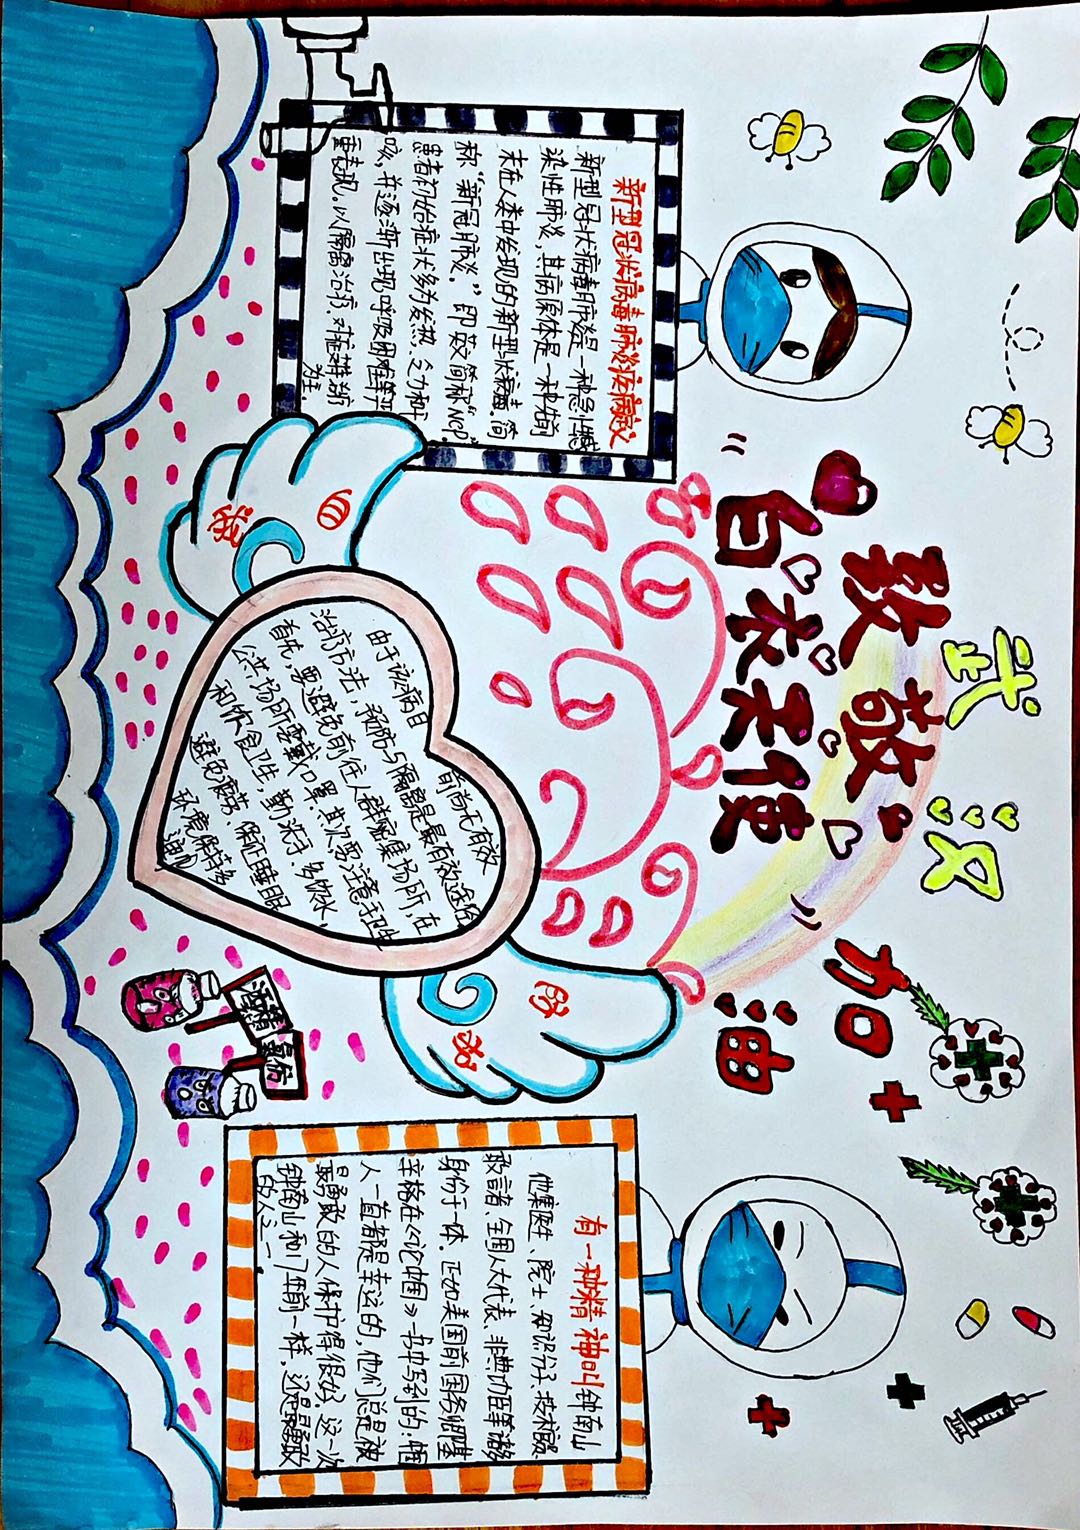 武汉
致敬
加油
“白衣天使”
新型冠状病毒肺炎疾病定义
新型冠状病毒肺炎是一种急性感
染性肺炎,其病原体是一种先前
未在人类中发现的新型状病毒.简
称“新冠肺炎”,即疫简称“Ncp”.
患者初始症状多为发热、乏力和干
咳,并逐渐出现呼吸困难等严
重表现。以隔离治疗.对症排治疗
为主.
自我
由于该病目前尚无有效
治疗方法,预防与隔离是最有效途径
首先,要避免前往人群密集场所,在
公共场所需戴口罩.其次要注意手卫生
和饮食卫生,勤洗手.多饮水,
避免疲劳.保证睡眠
环境保持多
通风
防护
酒精
有一种精神叫钟南山
他集医生、院士、知识分子、技术官员
敢言者、全国人大代表、非典功臣等诸多
身份于一体.正如美国前国务卿基
辛格在《论中国》一书中写到的:中国
人一直都是幸运的,他们总是被
最勇敢的人保护得很好.这一次
钟南山和17年前一样,还是最勇敢
的人之一.